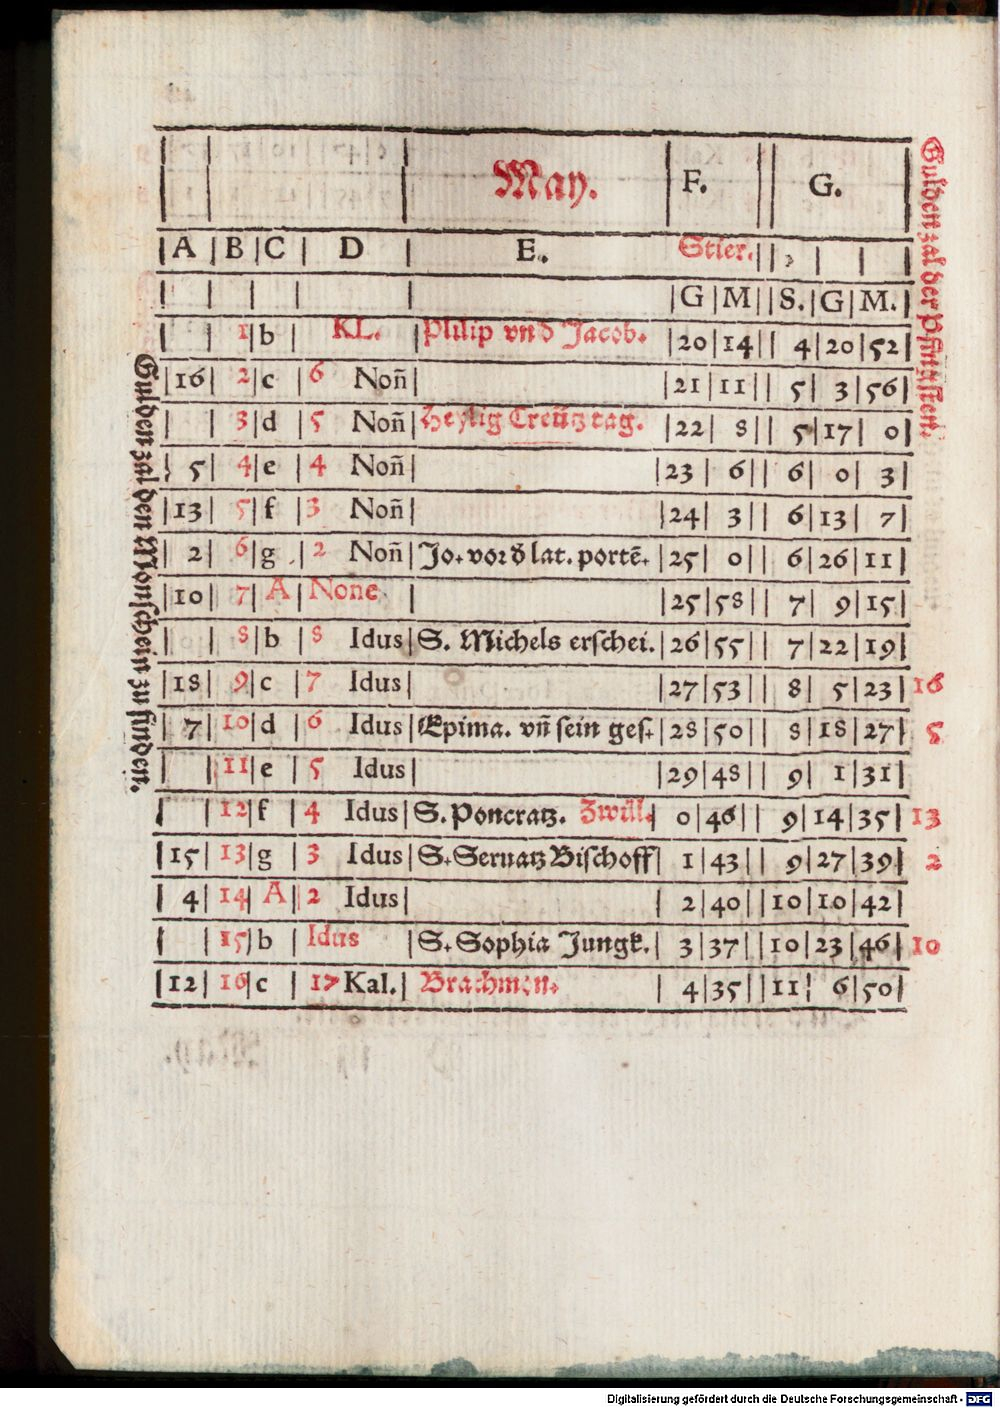 May. F. G.
A B C D E. Stier.
G M S. G M.
1 b KL. Philip vnd Jacob. 20 14 4 20 52
16 2 c 6 Noñ 21 11 5 3 56
3 d 5 Noñ Heylig Creütz tag. 22 8 5 17 0
5 4 e 4 Noñ 23 6 6 0 3
13 5 f 3 Noñ 24 3 6 13 7
2 6 g 2 Noñ Jo. vor d lat. portē. 25 0 6 26 11
10 7 A None 25 58 7 9 15
8 b 8 Idus S. Michels erschei. 26 55 7 22 19
18 9 c 7 Idus 27 53 8 5 23 16
7 10 d 6 Idus Epima. vñ sein ges. 28 50 8 18 27 5
11 e 5 Idus 29 48 9 1 31
12 f 4 Idus S. Poncratz. Zwill. 0 46 9 14 35 13
15 13 g 3 Idus S. Seruatz Bischoff 1 43 9 27 39 2
4 14 A 2 Idus 2 40 10 10 42
15 b Idus S. Sophia Jungk. 3 37 10 23 46 10
12 16 c 17 Kal. Brachmon. 4 35 11 6 50
Gulden zal den Monschein zu finden.
Gulden zal der Pfingsten.
Digitalisierung gefördert durch die Deutsche Forschungsgemeinschaft - DFG